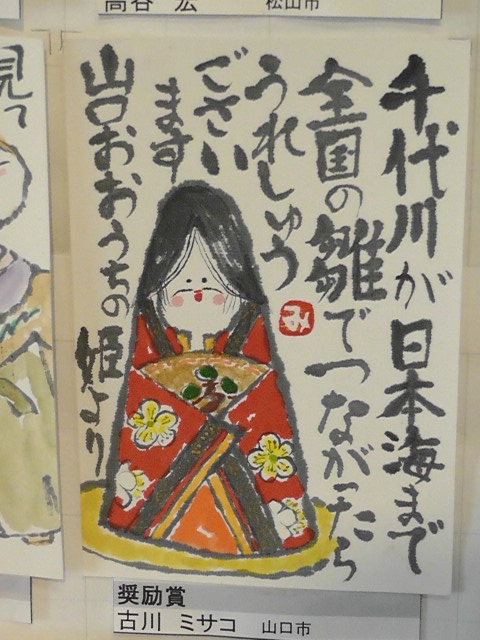 高谷 宏 松山市
見て
千代川が日本海まで
全国の雛でつながったら
うれしゅう
ござい
ます
山口おおうちの姫より
み
奨励賞
古川 ミサコ 山口市